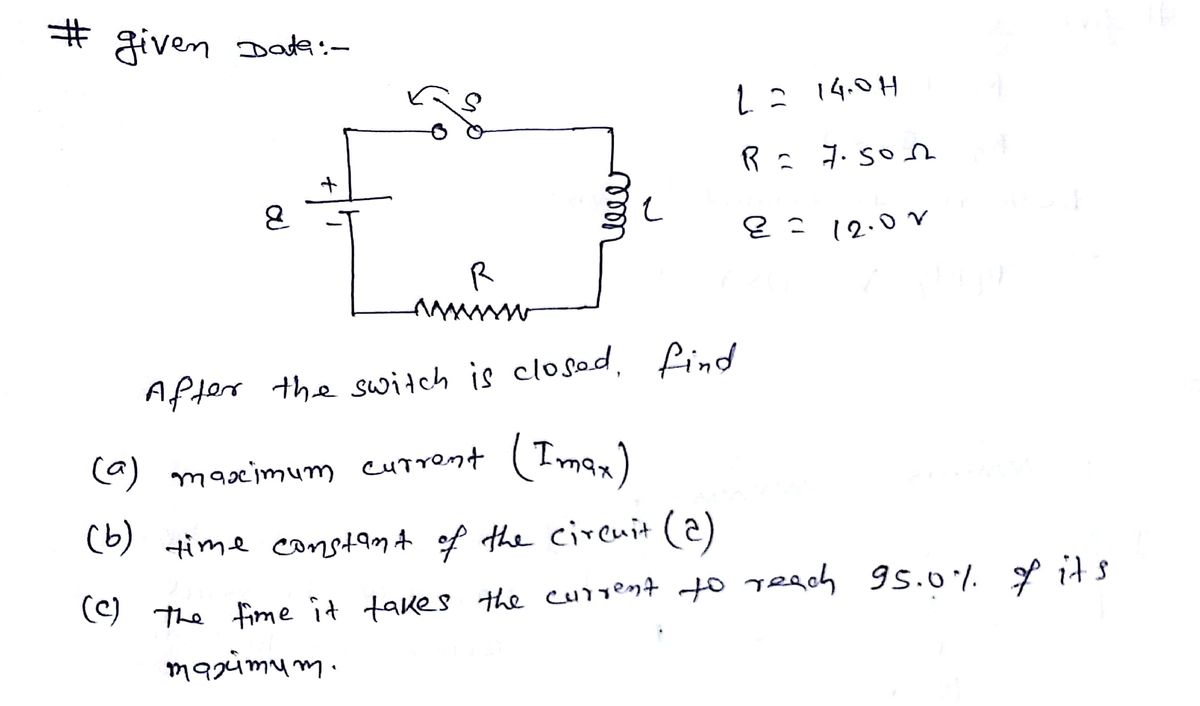 # given Data:-
S
L = 14.0H
R = 7.50 Ω
+
ε
-
L
ε = 12.0 V
R
After the switch is closed, find
(a) maximum current (Imax)
(b) time constant of the circuit (τ)
(c) The time it takes the current to reach 95.0% of its
maximum.